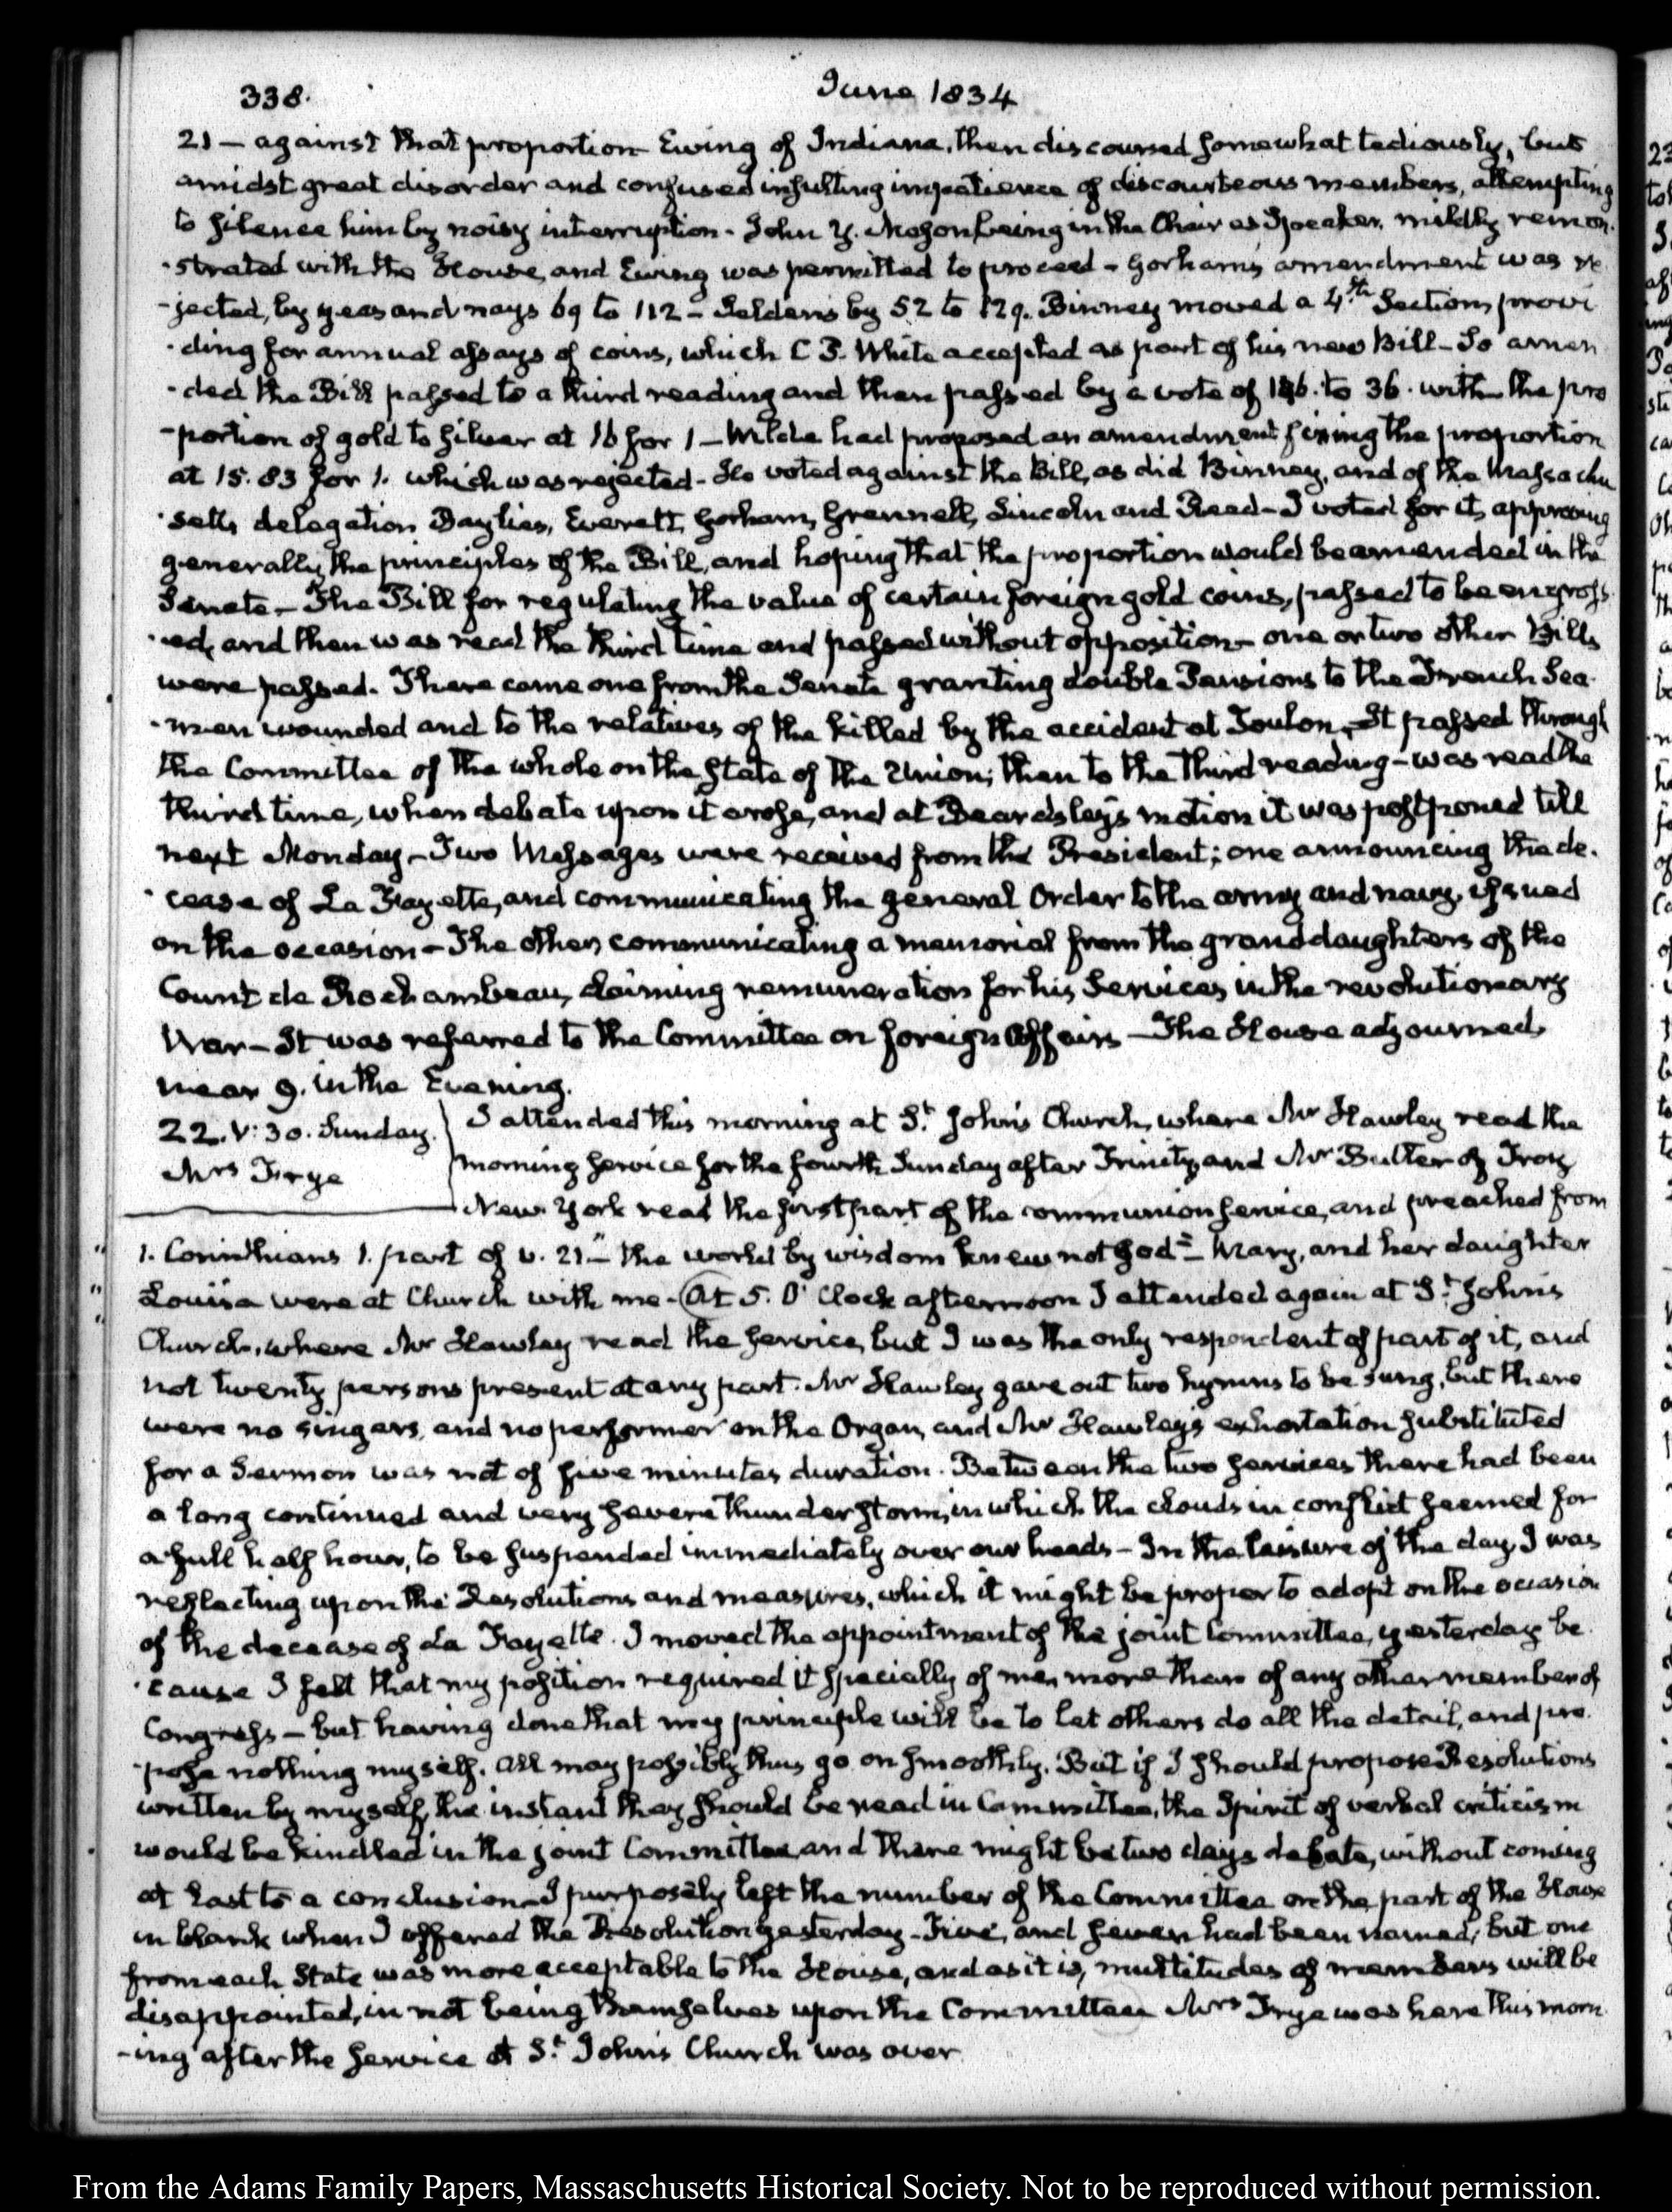 338. June 1834
21 — against that proportion Ewing of Indiana, then discoursed somewhat tediously, but
amidst great disorder and confused insulting impatience of discourteous members, attempting
to silence him by noisy interruption - John Y. Mason being in the Chair as Speaker, mildly remon-
-strated with the House, and Ewing was permitted to proceed - Gorham's amendment was re
-jected, by yeas and nays 69 to 112 - Selden's by 52 to 129. Binney moved a 4th Section, provi
-ding for annual assays of coins, which C P. White accepted as part of his new Bill - So amen
-ded the Bill passed to a third reading and then passed by a vote of to 36. with the pro
-portion of gold to silver at 16 for 1 — Wilde had proposed an amendment fixing the proportion
at 15.83 for 1. which was rejected - He voted against the Bill, as did Binney, and of the Massachu
-setts delegation Baylies, Everett, Gorham, Grennell, Lincoln and Reed - I voted for it, approving
generally the principles of the Bill, and hoping that the proportion would be amended in the
Senate - The Bill for regulating the value of certain foreign gold coins, passed to be engross
-ed, and then was read the third time and passed without opposition - one or two other Bills
were passed. There came one from the Senate granting double Pensions to the French Sea-
-men wounded and to the relatives of the killed by the accident at Toulon, It passed through
the Committee of the whole on the State of the Union; then to the third reading - was read the
third time, when debate upon it arose, and at Beardsley's motion it was postponed till
next Monday - Two Messages were received from the President; one announcing the de-
-cease of La Fayette, and communicating the general Order to the army and navy, issued
on the occasion - The other, communicating a memorial from the granddaughters of the
Count de Rochambeau, claiming remuneration for his Services in the revolutionary
War - It was referred to the Committee on foreign Affairs - The House adjourned
near 9. in the Evening.
22. V: 30. Sunday. I attended this morning at St. John's Church, where Mr Hawley read the
Mrs Frye morning service for the fourth Sunday after Trinity, and Mr Butler of Troy
New York read the first part of the communion service, and preached from
1. Corinthians 1. part of v. 21. "the world by wisdom knew not God" - Mary, and her daughter
Louisa were at Church with me - At 5. O'Clock afternoon I attended again at St. John's
Church, where Mr Hawley read the service, but I was the only respondent of part of it, and
not twenty persons present at any part. Mr Hawley gave out two hymns to be sung, but there
were no singers, and no performer on the Organ, and Mr Hawley's exhortation substituted
for a Sermon was not of five minutes duration. Between the two services there had been
a long continued and very severe thunder storm, in which the clouds in conflict seemed for
a full half hour, to be suspended immediately over our heads - In the leisure of the day, I was
reflecting upon the Resolutions and measures, which it might be proper to adopt on the occasion
of the decease of La Fayette. I moved the appointment of the joint Committee, yesterday be-
-cause I felt that my position required it specially of me, more than of any other member of
Congress - but having done that my principle will be to let others do all the detail, and pro-
-pose nothing myself. All may possibly thus go on smoothly. But if I should propose Resolutions
written by myself, the instant they should be read in Committee, the Spirit of verbal criticism
would be kindled in the joint Committee and there might be two days debate, without coming
at last to a conclusion - I purposely left the number of the Committee on the part of the House
in blank when I offered the Resolution yesterday - Five, and seven had been named; but one
from each State was more acceptable to the House, and as it is, multitudes of members will be
disappointed, in not being themselves upon the Committee Mrs Frye was here this morn-
-ing after the service at St. John's Church was over
From the Adams Family Papers, Massachusetts Historical Society. Not to be reproduced without permission.